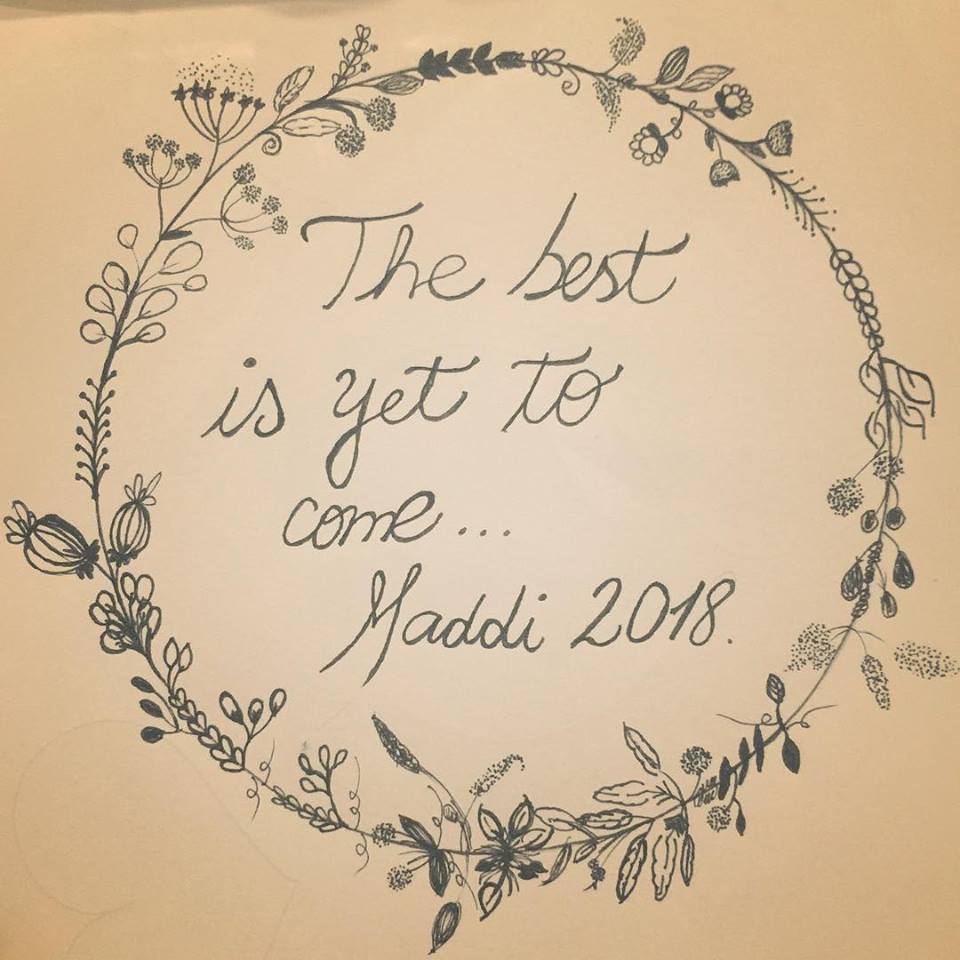 The best
is yet to
come...
Maddi 2018.